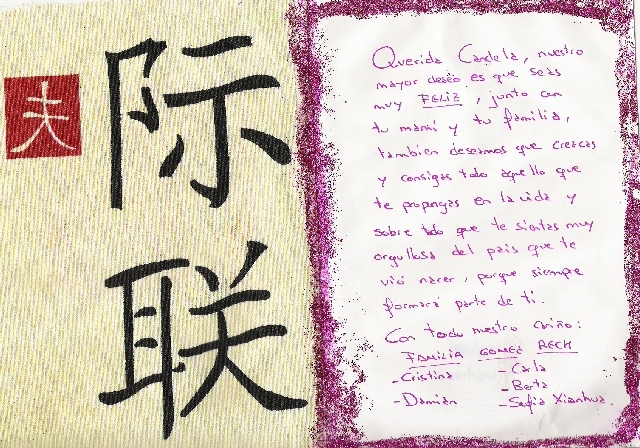 夫
际
联
Querida Candela, nuestro
mayor deseo es que seas
muy FELIZ, junto con
tu mamá y tu familia,
tambien deseamos que crezcas
y consigas todo aquello que
te propongas en la vida y
sobre todo que te sientas muy
orgullosa del pais que te
vió nacer, porque siempre
formará parte de ti.
Con todo nuestro cariño:
FAMILIA GOMEZ RECH
-Cristina
-Carla
-Berta
-Damián
-Sofia Xianhua.